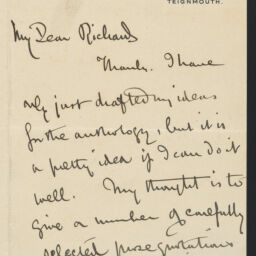 TEIGNMOUTH.
My Dear Richards
Thanks. I have
only just drafted my ideas
for the anthology, but it is
a pretty idea if I can do it
well. My thought is to
give a number of carefully
selected prose quotations